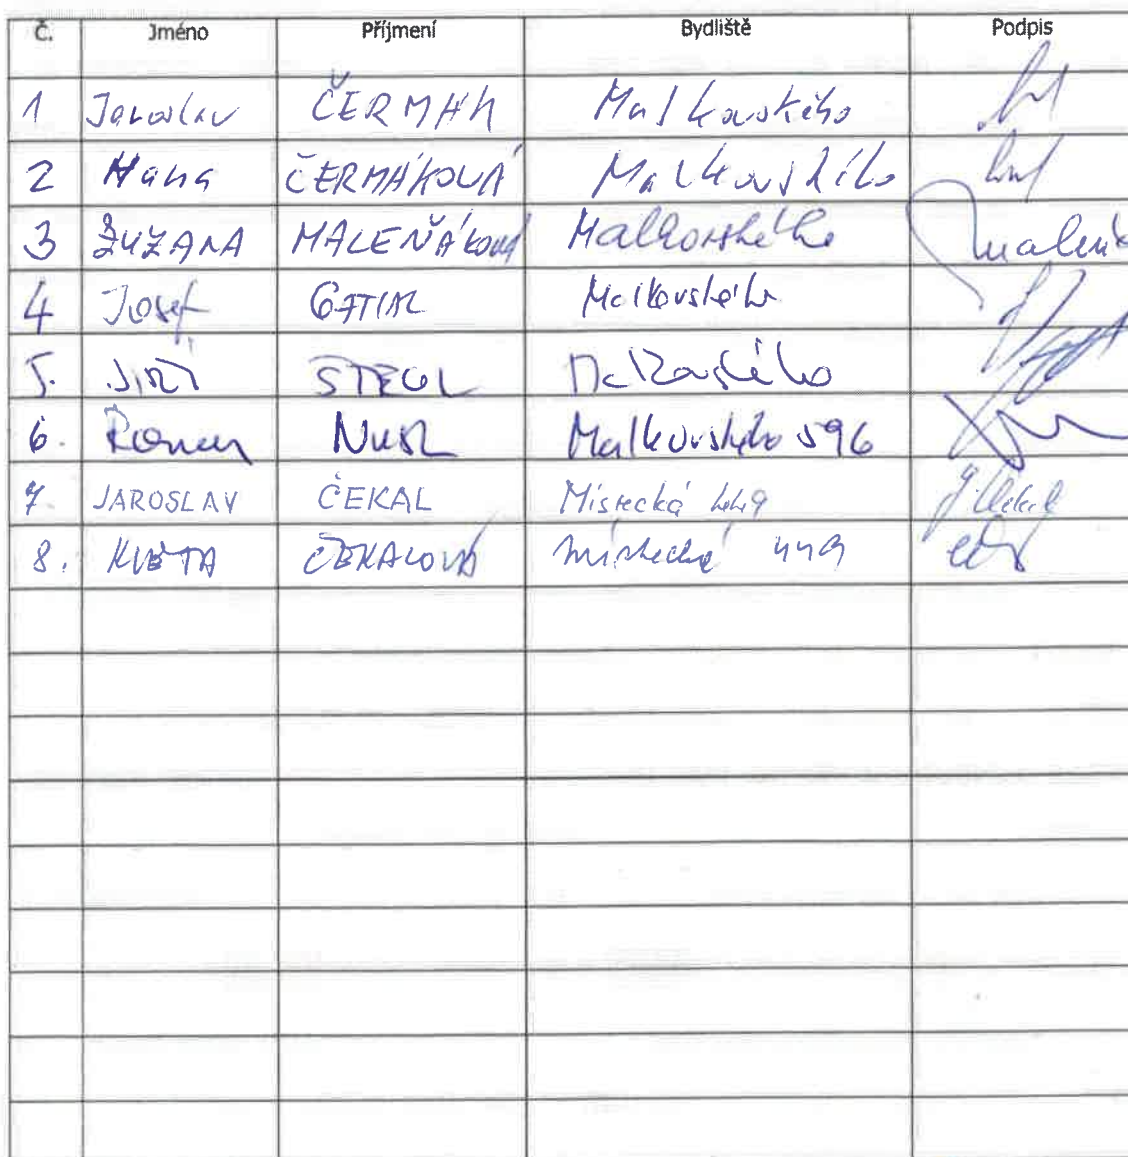 Č. Jméno Příjmení Bydliště Podpis
1 Jaroslav ČERMÁK Malkovského
2 Hana ČERMÁKOVÁ Malkovského
3 ZUZANA MALEŇÁKOVÁ Malkovského
4 Josef Malkovského
5. JIŘÍ Malkovského
6. Roman NUSL Malkovského 596
7. JAROSLAV ČEKAL Místecká 449
8. KVĚTA ČEKALOVÁ Místecká 449